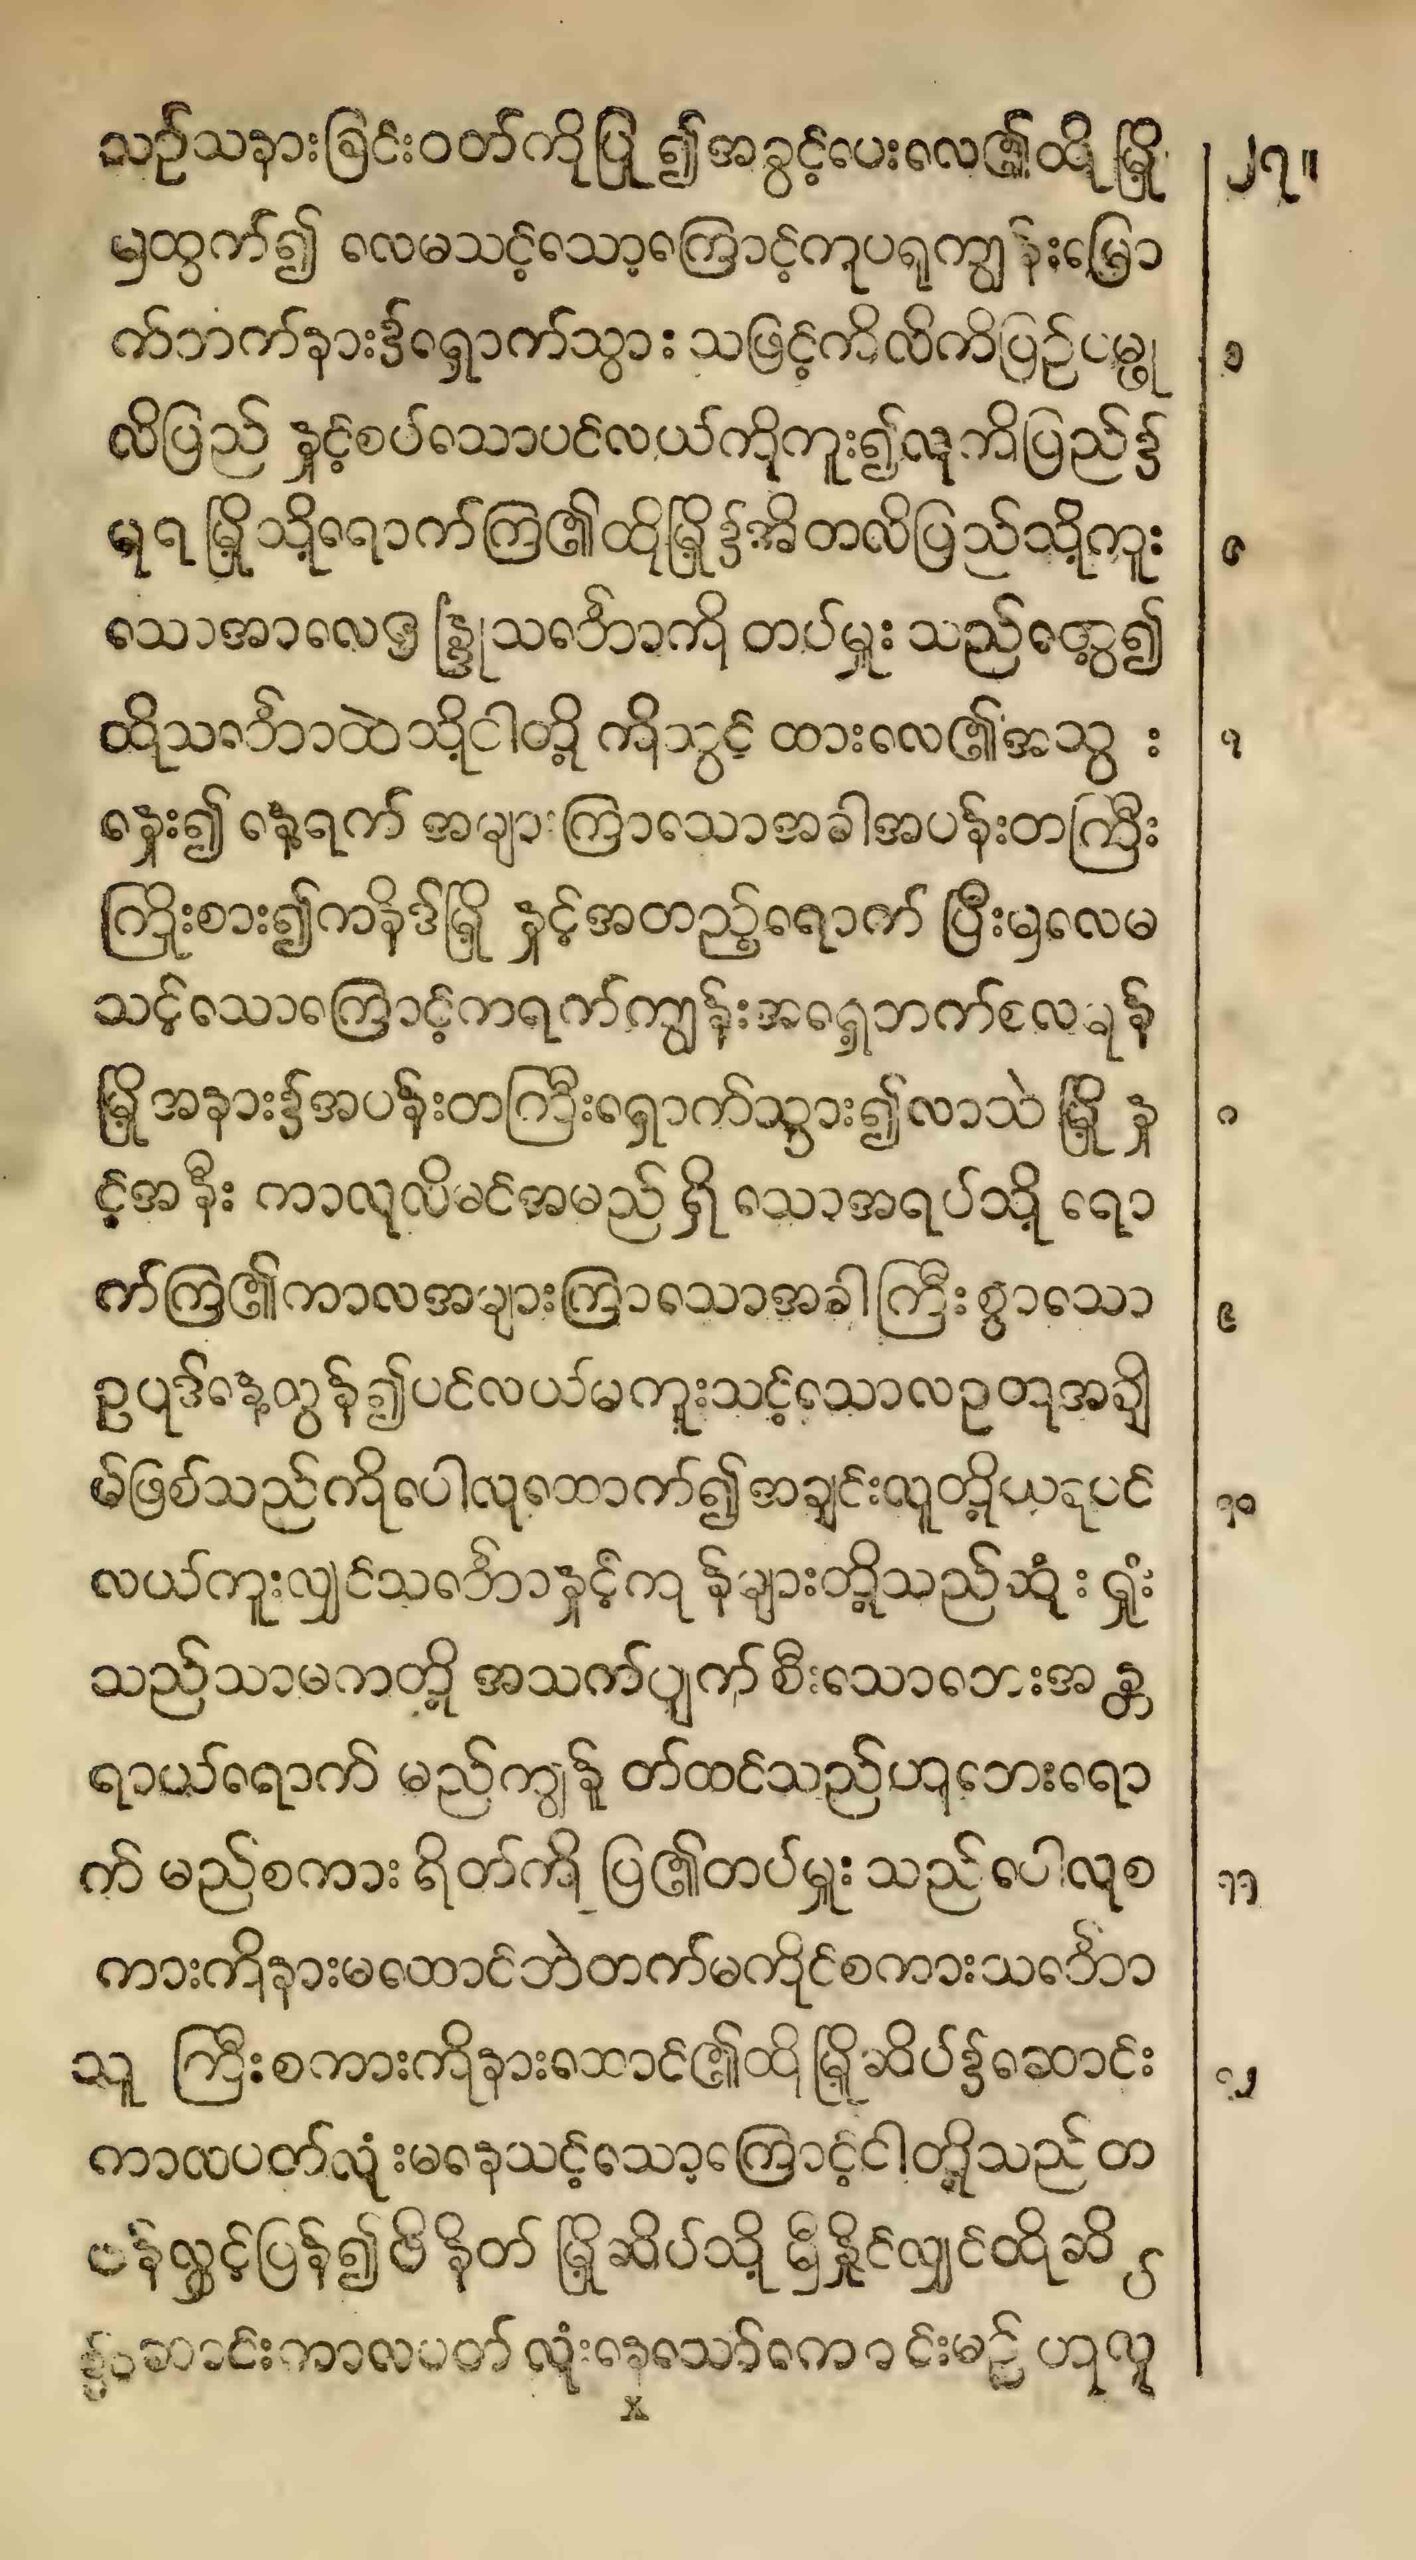 သဉ်သနားခြင်းဝတ်ကိုပြု၍အခွင့်ပေးလေ၏ထိုမြို့ ၂၇။
မှထွက်၍ လေမသင့်သော့ကြောင့်ကုပရုကျွန်းမြော
က်ဘက်နားဒ်ရှောက်သွား သဖြင့်ကိလိကိပြဉ်ပမ္ဖု ၁
လိပြည် နှင့်စပ်သောပင်လယ်ကိုကူး၍လုကိပြည်ဒ်
မုရ မြို့သို့ရောက်ကြ၏ထိုမြို့ဒ်အိတလိပြည်သို့ကူး ၆
သောအာလေဇန္ဒြုသင်္ဘောကို တပ်မှူး သည်တွေ့၍
ထိုသင်္ဘောထဲသို့ငါတို့ ကိုသွင့် ထားလေ၏အသွ း ၇
နှေး၍ နေ့ရက် အများကြာသောအခါအပန်းတကြီး
ကြိုးစား၍ကနိဒ်မြို့ နှင့်အတည့်ရောက် ပြီးမှလေမ
သင့်သောကြောင့်ကရက်ကျွန်းအရှေ့ဘက်လေမုန်
မြို့အနားဒ်အပန်းတကြီးရှောက်သွား၍လာသဲ မြို့ နှ ၈
င့်အနီး ကာလုလိမင်အမည် ရှိ သောအရပ်သို့ ရော
က်ကြ၏ကာလအများကြာသောအခါကြီးစွာသော ၉
ဥပုဒ်နေ့လွန်၍ပင်လယ်မကူးသင့်သောလဥတုအချိ
မ်ဖြစ်သည်ကိုပေါလုထောက်၍အချင်းလူတို့ယခုပင် ၁၀
လယ်ကူးလျှင်သင်္ဘောနှင့်ကုန်များတို့သည်ဆုံး ရှုံး
သည်သာမကတို့ အသက်ပျက် စီးသောဘေးအန္တ
ရာယ်ရောက် မည်ကျွန်ု တ်ထင်သည်ဟုဘေးရော
က် မည်စကား ရိတ်ကို ပြ၏တပ်မှူး သည်ပေါလုစ ၁၁
ကားကိုနားမထောင်ဘဲတက်မကိုင်စကားသင်္ဘော
သူ ကြီးစကားကိုနားထောင်၏ထိုမြို့ဆိပ်ဒ်ဆောင်း ၁၂
ကာလပတ်လုံးမနေသင့်သော့ကြောင့်ငါတို့သည်တ
ဖန်လွှင့်ပြန်၍ဖိနိတ် မြို့ဆိပ်သို့ မှီနိုင်လျှင်ထိုဆိပ်
ဒ်ဆောင်းကာလပတ် လုံးနေသော်ကောင်းမည် ဟုလူ
X